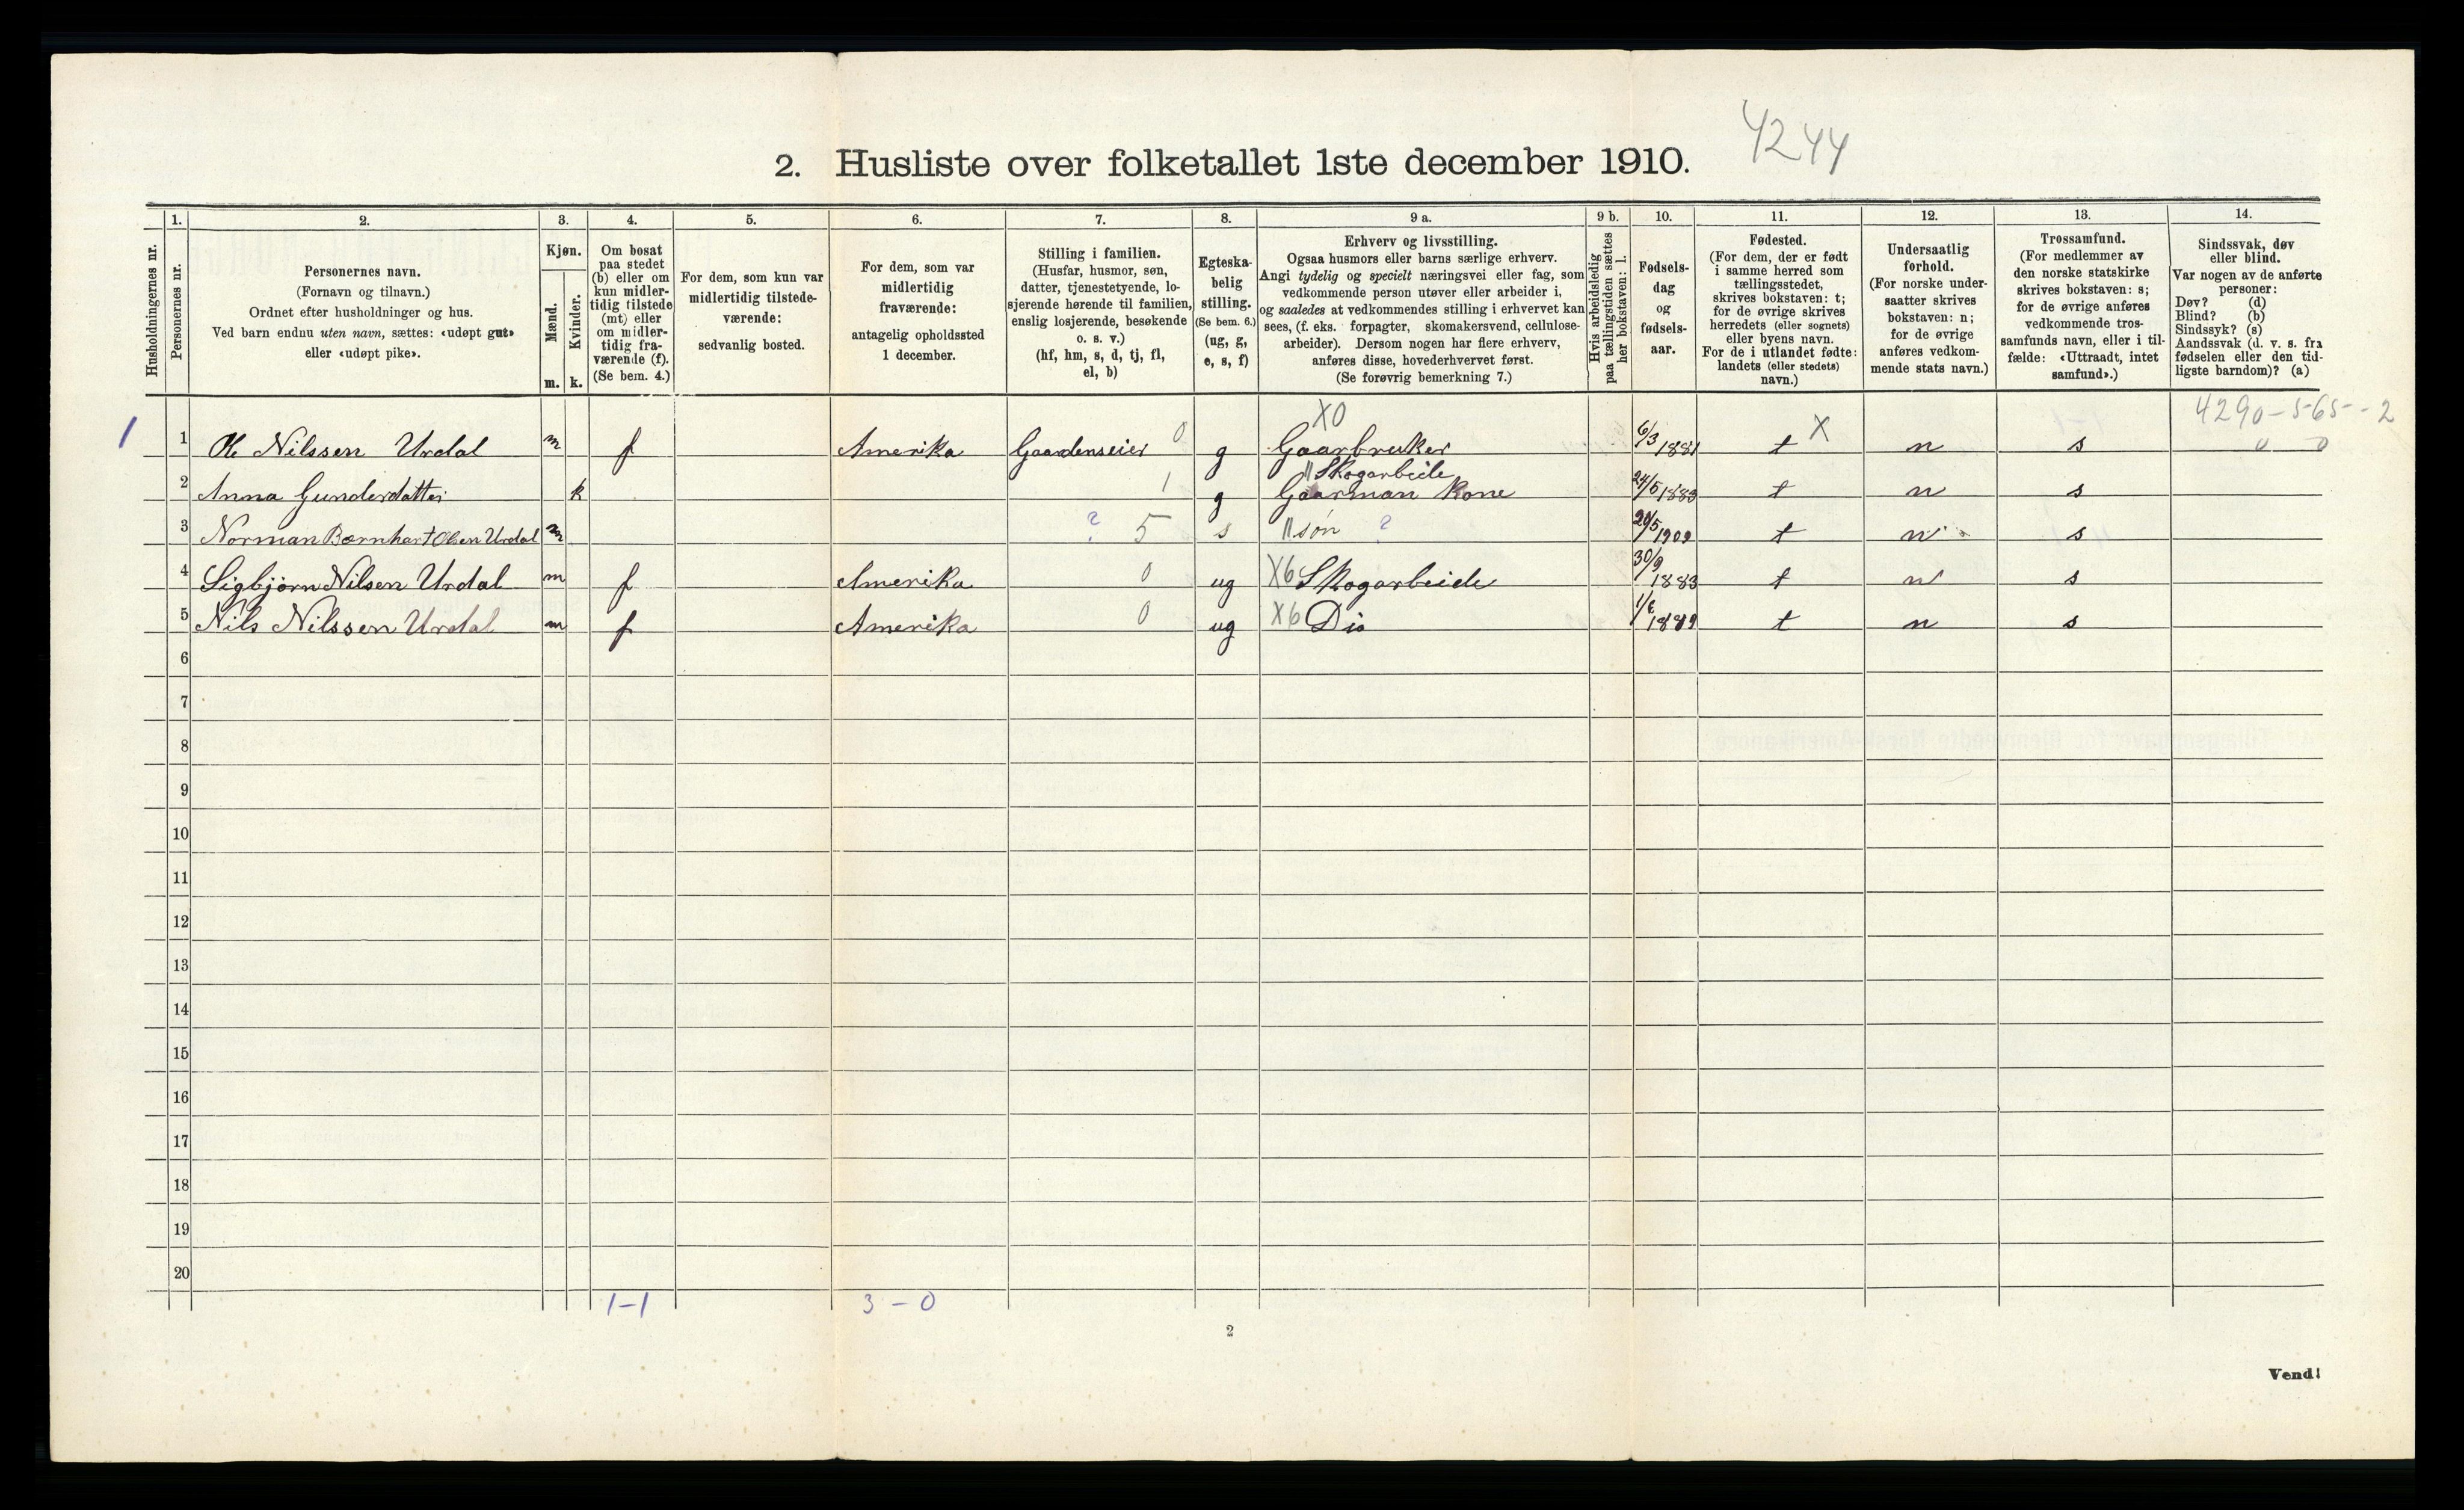 4244
2. Husliste over folketallet 1ste december 1910.
1. 2. 3. 4. 5. 6. 7. 8. 9 a. 9 b. 10. 11. 12. 13. 14.
Husholdningernes nr.
Personernes nr.
Personernes navn.
(Fornavn og tilnavn.)
Ordnet efter husholdninger og hus.
Ved barn endnu uten navn, sættes: «udøpt gut»
eller «udøpt pike».
Kjøn.
Mænd.
Kvinder.
m. k.
Om bosat
paa stedet
(b) eller om
kun midler-
tidig tilstede
(mt) eller
om midler-
tidig fra-
værende (f).
(Se bem. 4.)
For dem, som kun var
midlertidig tilstede-
værende:
sedvanlig bosted.
For dem, som var
midlertidig
fraværende:
antagelig opholdssted
1 december.
Stilling i familien.
(Husfar, husmor, søn,
datter, tjenestetyende, lo-
sjerende hørende til familien,
enslig losjerende, besøkende
o. s. v.)
(hf, hm, s, d, tj, fl,
el, b)
Egteska-
belig
stilling.
(Se bem. 6.)
(ug, g,
e, s, f)
Erhverv og livsstilling.
Ogsaa husmors eller barns særlige erhverv.
Angi tydelig og specielt næringsvei eller fag, som
vedkommende person utøver eller arbeider i,
og saaledes at vedkommendes stilling i erhvervet kan
sees, (f. eks. forpagter, skomakersvend, cellulose-
arbeider). Dersom nogen har flere erhverv,
anføres disse, hovederhvervet først.
(Se forøvrig bemerkning 7.)
Hvis arbeidsledig
paa tællingstiden sættes
her bokstaven: l.
Fødsels-
dag
og
fødsels-
aar.
Fødested.
(For dem, der er født
i samme herred som
tællingsstedet,
skrives bokstaven: t;
for de øvrige skrives
herredets (eller sognets)
eller byens navn.
For de i utlandet fødte:
landets (eller stedets)
navn.)
Undersaatlig
forhold.
(For norske under-
saatter skrives
bokstaven: n;
for de øvrige
anføres vedkom-
mende stats navn.)
Trossamfund.
(For medlemmer av
den norske statskirke
skrives bokstaven: s;
for de øvrige anføres
vedkommende tros-
samfunds navn, eller i til-
fælde: «Uttraadt, intet
samfund».)
Sindssvak, døv
eller blind.
Var nogen av de anførte
personer:
Døv? (d)
Blind? (b)
Sindssyk? (s)
Aandssvak (d. v. s. fra
fødselen eller den tid-
ligste barndom)? (a)
X0 4290-565--2
1 1 Ole Nilssen Urdal m f Amerika Gaardenseier 0 g Gaarbruker 6/3 1881 t X n s 0 0
Skogarbeide
2 Anna Gunderdatter k 1 g Gaarman Kone 24/5 1883 t n s
3 Norman Bærnhart Olsen Urdal m ? 5 s " søn ? 20/5 1909 t n s
4 Sigbjørn Nilsen Urdal m f Amerika 0 ug X6 Skogarbeide 30/9 1883 t n s
5 Nils Nilssen Urdal m f Amerika 0 ug X6 Dio 1889 t n s
6
7
8
9
10
11
12
13
14
15
16
17
18
19
20
1-1 3-0
2
Vend!